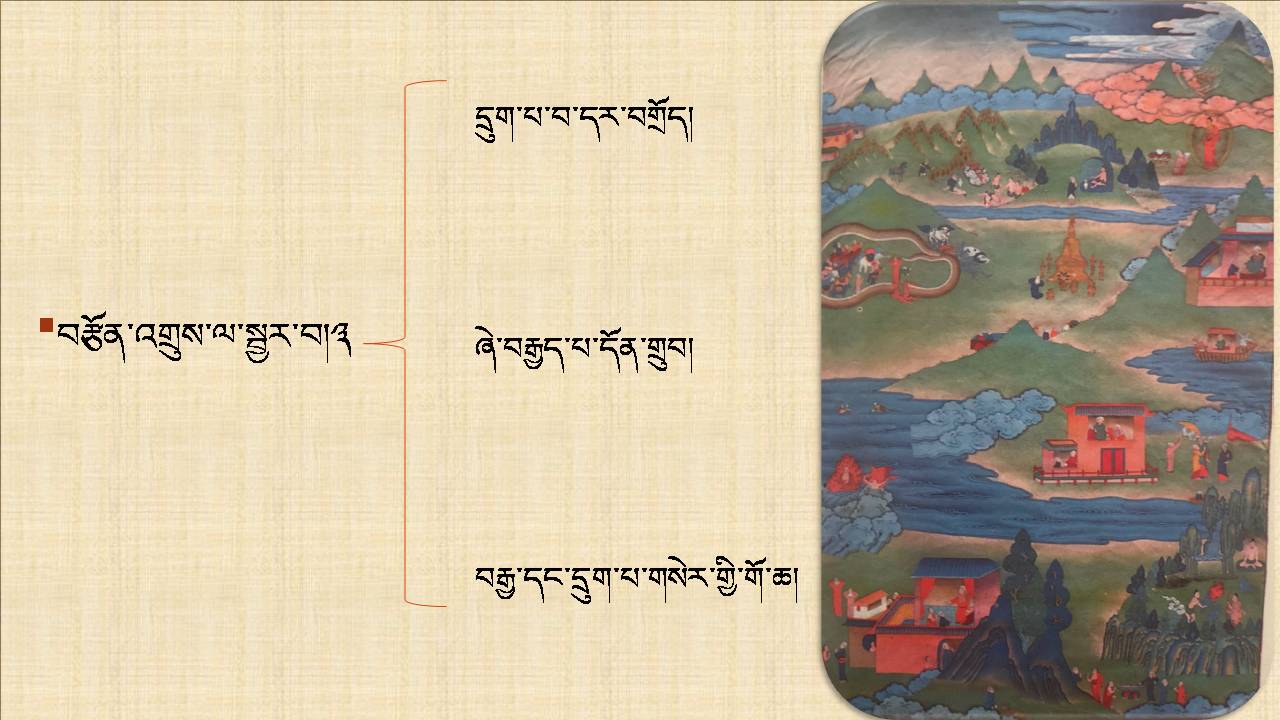 བརྩོན་འགྲུས་ལ་སྦྱར་བ།༣
དྲུག་པ་བ་དར་བགྲོད།
ཞེ་བརྒྱད་པ་དོན་གྲུབ།
བརྒྱ་དང་དྲུག་པ་གསེར་གྱི་གོ་ཆ།